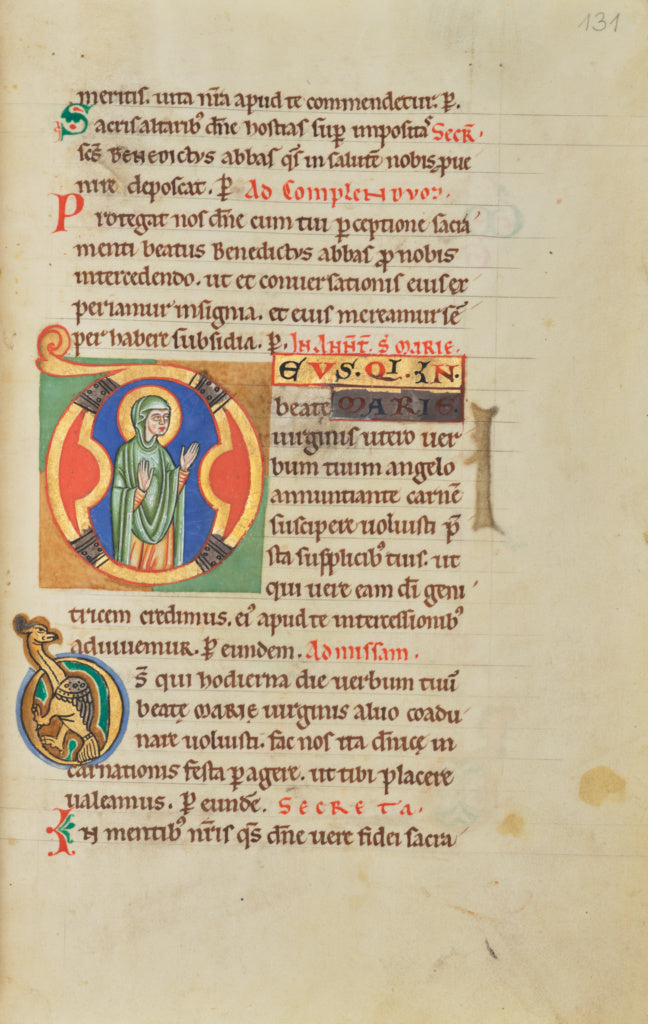 131
meritis. uita nr̄a apud te commendetur. P̄.
Sacris altarib; dn̄e hostias sup̄ impositas Secr̄.
sc̄s BENEDICTVS abbas qs̄ in salutē nobis ꝓue
nire deposcat. P̄ Ad Complendum.
Protegat nos dn̄e cum tui p̄ceptione sacra
menti beatus Benedictus abbas ꝓ nobis
intercedendo. ut et conuersationis eius ex
periamur insignia. et eius mereamur sē
per habere subsidia. P̄. IN AN̄N̄T̄. S. MARIE.
DEVS. QVI. IN.
beatę MARIE.
uirginis utero uer
bum tuum angelo
annuntiante carnē
suscipere uoluisti. p̄
sta supplicib; tuis. ut
qui uere eam dī geni
tricem credimus. ei' apud te intercessionib;
adiuuemur. P̄ eundem. Ad missam.
Ds̄ qui hodierna die uerbum tuū
beatę MARIE uirginis aluo coadu
nare uoluisti. fac nos ita dn̄icę in
carnationis festa p̄agere. ut tibi placere
ualeamus. P̄ eundē. SECRETA.
IN mentib; nr̄is qs̄ dn̄e uere fidei sacra